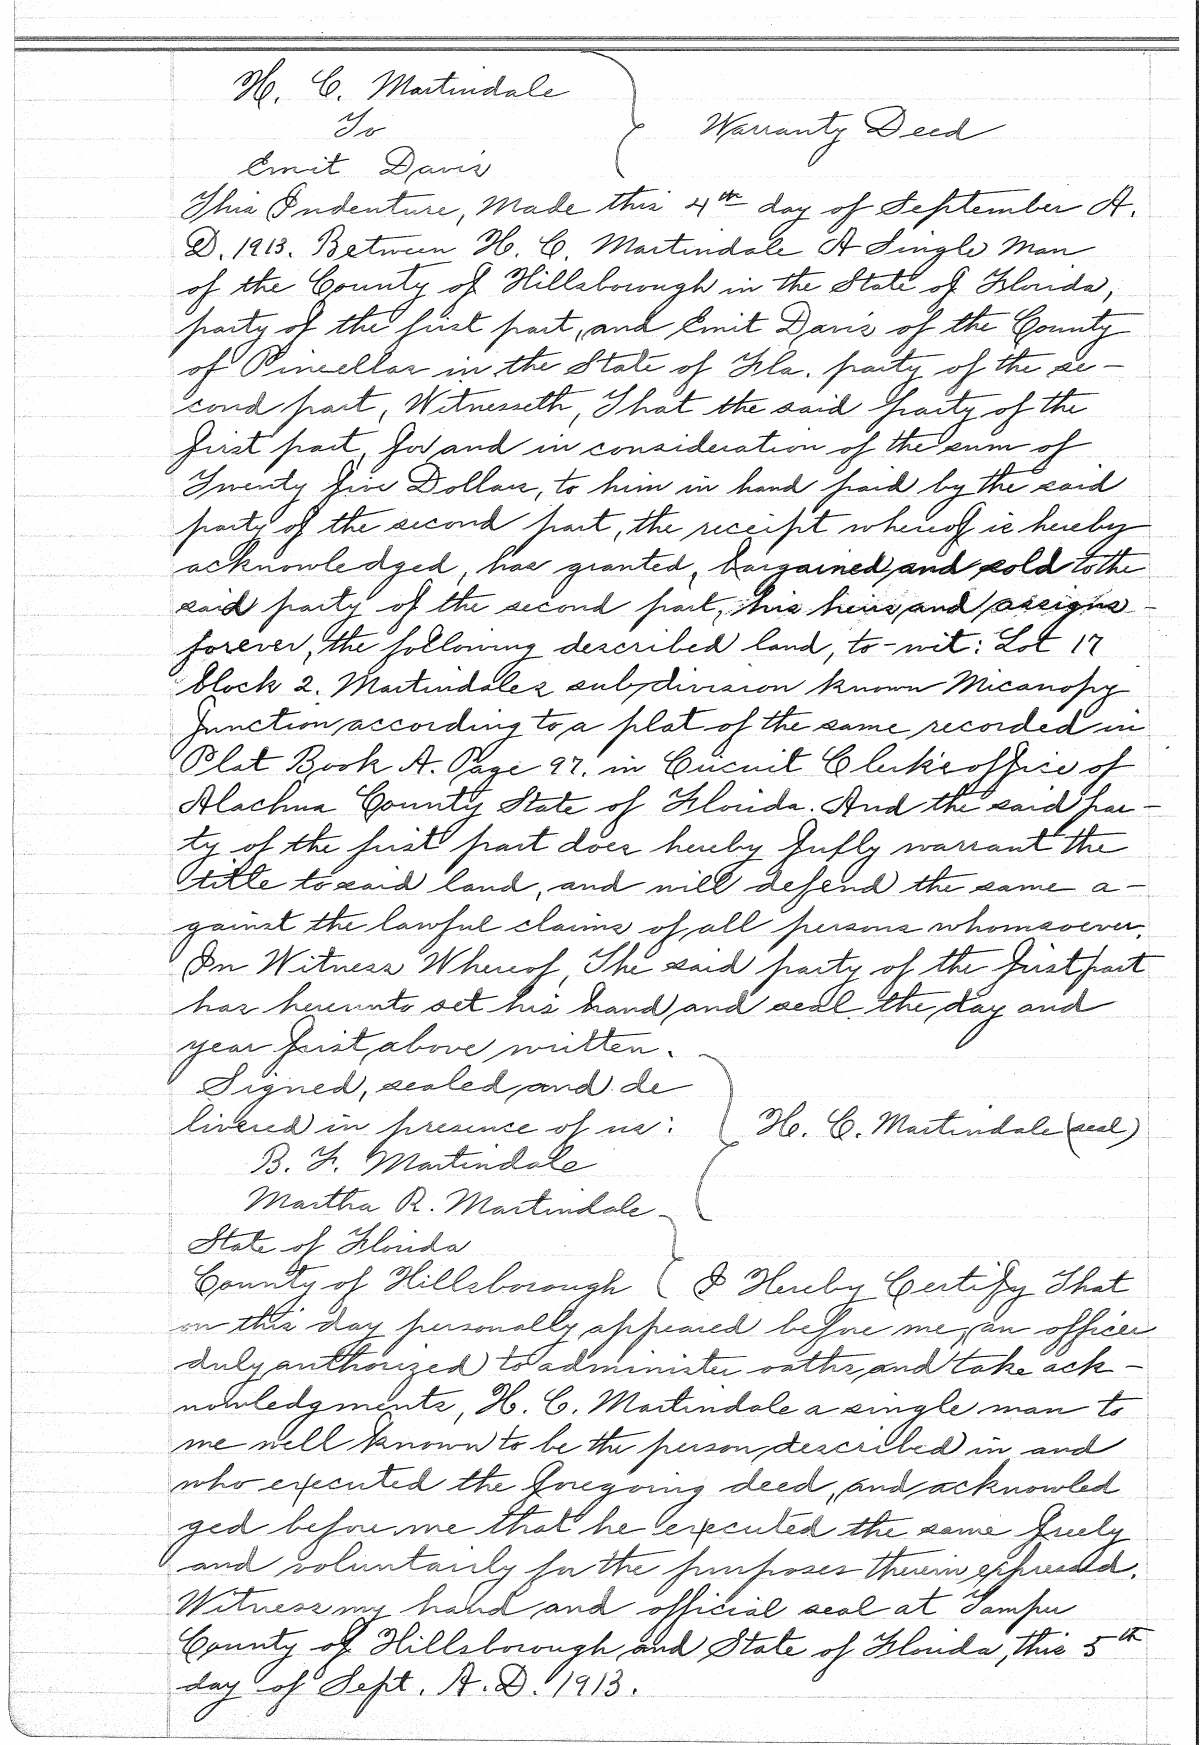 H. C. Martindale
To
Warranty Deed
Emit Davis
This Indenture, Made this 4th day of September A.
D. 1913. Between H. C. Martindale A Single Man
of the County of Hillsborough in the State of Florida,
party of the first part, and Emit Davis of the County
of Pincellas in the State of Fla. party of the se-
cond part, Witnesseth, That the said party of the
first part, for and in consideration of the sum of
Twenty five Dollars, to him in hand paid by the said
party of the second part, the receipt whereof is hereby
acknowledged, has granted, bargained and sold to the
said party of the second part, his heirs and assigns -
forever, the following described land, to-wit: Lot 17
block 2. Martindales subdivision known Micanopy
Junction according to a plat of the same recorded in
Plat Book A. Page 97. in Circuit Clerk's office of
Alachua County State of Florida. And the said par-
ty of the first part does hereby fully warrant the
title to said land, and will defend the same a-
gainst the lawful claims of all persons whomsoever.
In Witness Whereof, The said party of the first part
has hereunto set his hand and seal the day and
year first above written.
Signed, sealed and de
livered in presence of us:
H. C. Martindale (seal)
B. F. Martindale
Martha R. Martindale
State of Florida
County of Hillsborough ( I Hereby Certify That
on this day personally appeared before me, an officer
duly authorized to administer oaths and take ack-
nowledgments, H. C. Martindale a single man to
me well known to be the person described in and
who executed the foregoing deed, and acknowled
ged before me that he executed the same freely
and voluntarily for the purposes therein expressed.
Witness my hand and official seal at Tampa
County of Hillsborough and State of Florida, this 5th
day of Sept. A.D. 1913.